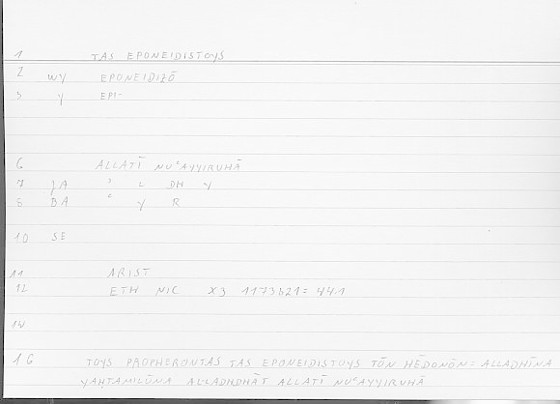 1 TAS EPONEIDISTOYS
2 WY EPONEIDIZŌ
3 Y EPI-
6 ALLATĪ NUʿAYYIRUHĀ
7 JA ʾ L DH Y
8 BA ʿ Y R
10 SE
11 ARIST
12 ETH NIC X3 1173b21= 441
14
16 TOYS PROPHERONTAS TAS EPONEIDISTOYS TŌN HĒDONŌN= ALLADHĪNA
YAHTAMILŪNA ALLADHDHĀT ALLATĪ NUʿAYYIRUHĀ